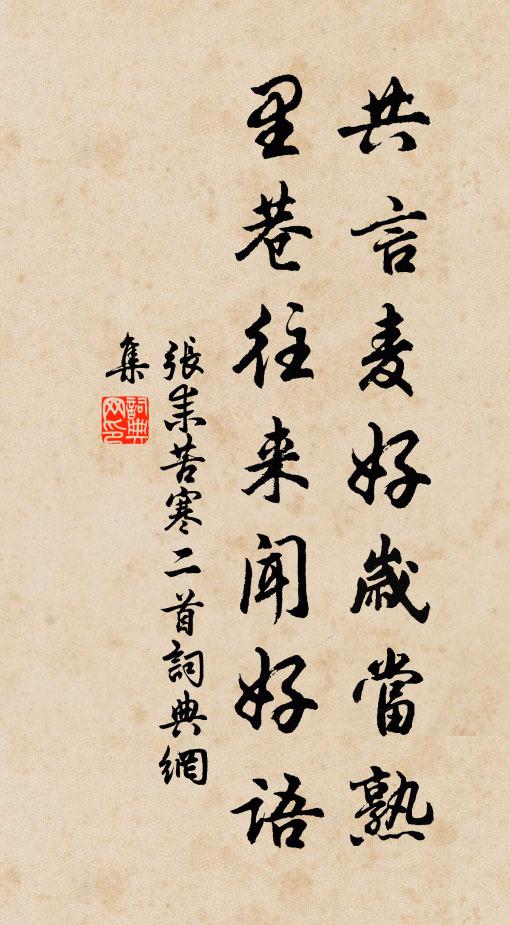 共言麦好歲當熟
里巷往来闻好语
張耒苦寒二首詞典網
集
詞典网印